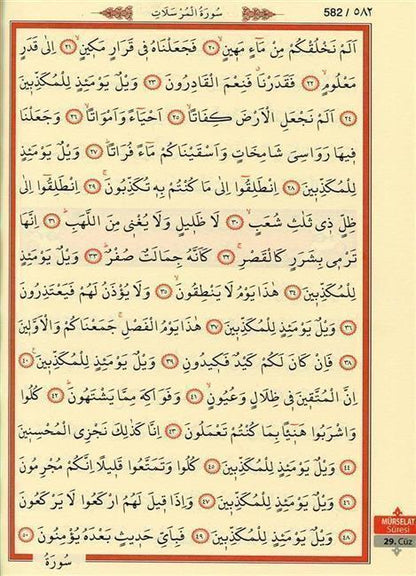 سُورَةُ الْمُرْسَلَاتِ
582 / ٥٨٢
اَلَمْ نَخْلُقْكُمْ مِنْ مَٓاءٍ مَهٖينٍۙ ﴿٢٠﴾ فَجَعَلْنَاهُ فٖي قَرَارٍ مَكٖينٍۙ ﴿٢١﴾ اِلٰى قَدَرٍ
مَعْلُومٍۙ ﴿٢٢﴾ فَقَدَرْنَاۗ فَنِعْمَ الْقَادِرُونَ ﴿٢٣﴾ وَيْلٌ يَوْمَئِذٍ لِلْمُكَذِّبٖينَ
﴿٢٤﴾ اَلَمْ نَجْعَلِ الْاَرْضَ كِفَاتًاۙ ﴿٢٥﴾ اَحْيَٓاءً وَاَمْوَاتًاۙ ﴿٢٦﴾ وَجَعَلْنَا
فٖيهَا رَوَاسِيَ شَامِخَاتٍ وَاَسْقَيْنَاكُمْ مَٓاءً فُرَاتًاۜ ﴿٢٧﴾ وَيْلٌ يَوْمَئِذٍ
لِلْمُكَذِّبٖينَ ﴿٢٨﴾ اِنْطَلِقُٓوا اِلٰى مَا كُنْتُمْ بِهٖ تُكَذِّبُونَۚ ﴿٢٩﴾ اِنْطَلِقُٓوا اِلٰى
ظِلٍّ ذٖي ثَلٰثِ شُعَبٍۙ ﴿٣٠﴾ لَا ظَلٖيلٍ وَلَا يُغْنٖي مِنَ اللَّهَبِۜ ﴿٣١﴾ اِنَّهَا
تَرْمٖي بِشَرَرٍ كَالْقَصْرِۚ ﴿٣٢﴾ كَاَنَّهُ جِمَالَتٌ صُفْرٌۜ ﴿٣٣﴾ وَيْلٌ يَوْمَئِذٍ
لِلْمُكَذِّبٖينَ ﴿٣٤﴾ هٰذَا يَوْمُ لَا يَنْطِقُونَۙ ﴿٣٥﴾ وَلَا يُؤْذَنُ لَهُمْ فَيَعْتَذِرُونَ
﴿٣٦﴾ وَيْلٌ يَوْمَئِذٍ لِلْمُكَذِّبٖينَ ﴿٣٧﴾ هٰذَا يَوْمُ الْفَصْلِۚ جَمَعْنَاكُمْ وَالْاَوَّلٖينَ
﴿٣٨﴾ فَاِنْ كَانَ لَكُمْ كَيْدٌ فَكٖيدُونِ ﴿٣٩﴾ وَيْلٌ يَوْمَئِذٍ لِلْمُكَذِّبٖينَ۟ ﴿٤٠﴾
اِنَّ الْمُتَّقٖينَ فٖي ظِلَالٍ وَعُيُونٍۙ ﴿٤١﴾ وَفَوَاكِهَ مِمَّا يَشْتَهُونَۜ ﴿٤٢﴾ كُلُوا
وَاشْرَبُوا هَنٖٓيـًٔا بِمَا كُنْتُمْ تَعْمَلُونَ ﴿٤٣﴾ اِنَّا كَذٰلِكَ نَجْزِي الْمُحْسِنٖينَ
﴿٤٤﴾ وَيْلٌ يَوْمَئِذٍ لِلْمُكَذِّبٖينَ ﴿٤٥﴾ كُلُوا وَتَمَتَّعُوا قَلٖيلًا اِنَّكُمْ مُجْرِمُونَ
﴿٤٦﴾ وَيْلٌ يَوْمَئِذٍ لِلْمُكَذِّبٖينَ ﴿٤٧﴾ وَاِذَا قٖيلَ لَهُمُ ارْكَعُوا لَا يَرْكَعُونَ
﴿٤٨﴾ وَيْلٌ يَوْمَئِذٍ لِلْمُكَذِّبٖينَ ﴿٤٩﴾ فَبِاَيِّ حَدٖيثٍ بَعْدَهُ يُؤْمِنُونَ ﴿٥٠﴾
سُورَةُ
MÜRSELAT
Sûresi
29. Cüz